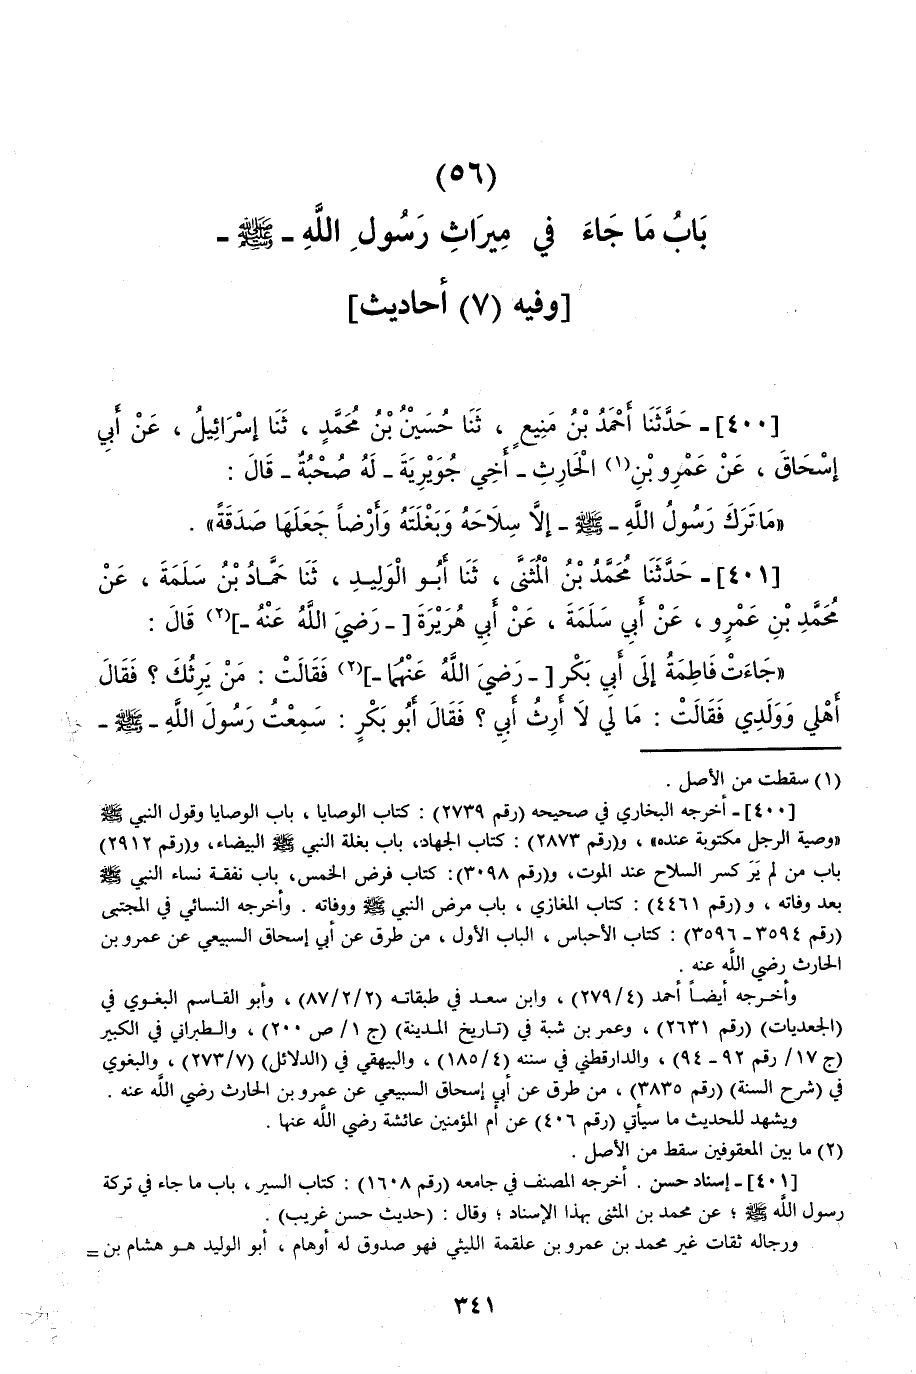 (٥٦)
بَابُ مَا جَاءَ في مِيرَاثِ رَسُولِ اللَّهِ ـ ﷺ ـ
[وفيه (٧) أحاديث]
[٤٠٠] ـ حَدَّثَنَا أَحْمَدُ بْنُ مَنِيعٍ ، ثَنَا حُسَيْنُ بْنُ مُحَمَّدٍ ، ثَنَا إِسْرَائِيلُ ، عَنْ أَبِي
إِسْحَاقَ ، عَنْ عَمْرِو بْنِ(١) الْحَارِثِ ـ أَخِي جُوَيْرِيَةَ ـ لَهُ صُحْبَةٌ ـ قَالَ :
«مَا تَرَكَ رَسُولُ اللَّهِ ـ ﷺ ـ إِلَّا سِلَاحَهُ وَبَغْلَتَهُ وَأَرْضاً جَعَلَهَا صَدَقَةً» .
[٤٠١] ـ حَدَّثَنَا مُحَمَّدُ بْنُ الْمُثَنَّى ، ثَنَا أَبُو الْوَلِيدِ ، ثَنَا حَمَّادُ بْنُ سَلَمَةَ ، عَنْ
مُحَمَّدِ بْنِ عَمْرٍو ، عَنْ أَبِي سَلَمَةَ ، عَنْ أَبِي هُرَيْرَةَ [ـ رَضِيَ اللَّهُ عَنْهُ ـ](٢) قَالَ :
«جَاءَتْ فَاطِمَةُ إِلَى أَبِي بَكْرٍ [ـ رَضِيَ اللَّهُ عَنْهُمَا ـ](٢) فَقَالَتْ : مَنْ يَرِثُكَ ؟ فَقَالَ
أَهْلِي وَوَلَدِي فَقَالَتْ : مَا لِي لَا أَرِثُ أَبِي ؟ فَقَالَ أَبُو بَكْرٍ : سَمِعْتُ رَسُولَ اللَّهِ ـ ﷺ ـ
(١) سقطت من الأصل .
[٤٠٠] ـ أخرجه البخاري في صحيحه (رقم ٢٧٣٩) : كتاب الوصايا ، باب الوصايا وقول النبي ﷺ
«وصية الرجل مكتوبة عنده» ، و(رقم ٢٨٧٣) : كتاب الجهاد، باب بغلة النبي ﷺ البيضاء، و(رقم ٢٩١٢)
باب من لم يَرَ كسر السلاح عند الموت، و(رقم ٣٠٩٨): كتاب فرض الخمس، باب نفقة نساء النبي ﷺ
بعد وفاته ، و(رقم ٤٤٦١) : كتاب المغازي ، باب مرض النبي ﷺ ووفاته . وأخرجه النسائي في المجتبى
(رقم ٣٥٩٤ ـ ٣٥٩٦) : كتاب الأحباس ، الباب الأول ، من طرق عن أبي إسحاق السبيعي عن عمرو بن
الحارث رضي اللَّه عنه .
وأخرجه أيضاً أحمد (٢٧٩/٤) ، وابن سعد في طبقاته (٨٧/٢/٢) ، وأبو القاسم البغوي في
(الجعديات) (رقم ٢٦٣١) ، وعمر بن شبة في (تاريخ المدينة) (ج ١/ ص ٢٠٠) ، والطبراني في الكبير
(ج ١٧/ رقم ٩٢ ـ ٩٤) ، والدارقطني في سننه (١٨٥/٤) ، والبيهقي في (الدلائل) (٢٧٣/٧) ، والبغوي
في (شرح السنة) (رقم ٣٨٣٥) ، من طرق عن أبي إسحاق السبيعي عن عمرو بن الحارث رضي اللَّه عنه .
ويشهد للحديث ما سيأتي (رقم ٤٠٦) عن أم المؤمنين عائشة رضي اللَّه عنها .
(٢) ما بين المعقوفين سقط من الأصل .
[٤٠١] ـ إسناد حسن . أخرجه المصنف في جامعه (رقم ١٦٠٨) : كتاب السير ، باب ما جاء في تركة
رسول اللَّه ﷺ ؛ عن محمد بن المثنى بهذا الإسناد ؛ وقال : (حديث حسن غريب) .
ورجاله ثقات غير محمد بن عمرو بن علقمة الليثي فهو صدوق له أوهام ، أبو الوليد هو هشام بن =
٣٤١